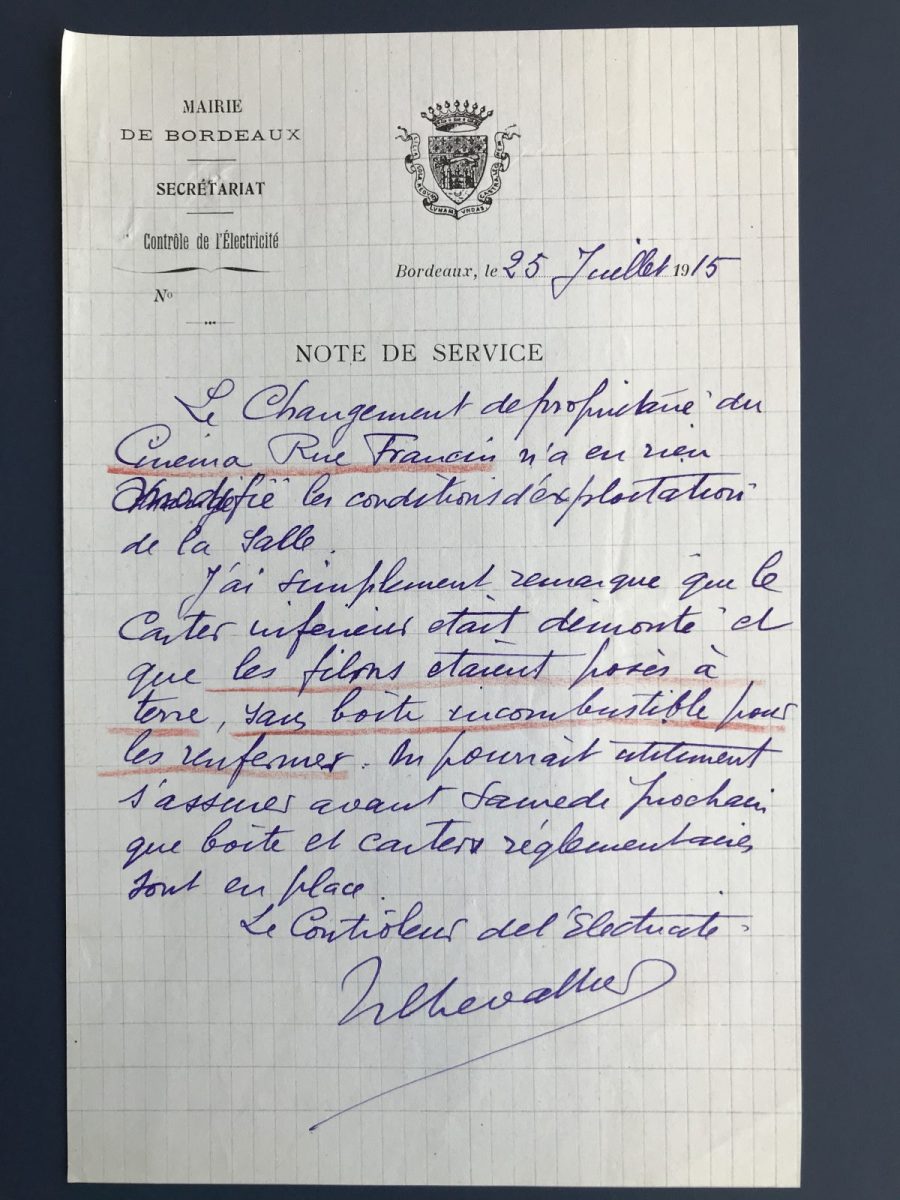 MAIRIE
DE BORDEAUX
SECRÉTARIAT
Contrôle de l'Électricité
No
LILIA SOLA REGUNT LUNAM UNDAS CASTRA LEONEM
Bordeaux, le 25 Juillet 1915
NOTE DE SERVICE
Le Changement de propriétaire du
Cinéma Rue Francin n'a en rien
modifié les conditions d'exploitation
de la Salle.
J'ai simplement remarqué que le
Carter inférieur était démonté et
que les films étaient posés à
terre, sans boîte incombustible pour
les renfermer. On pourrait utilement
s'assurer avant Samedi prochain
que boîte et carters réglementaires
sont en place.
Le Contrôleur de l'Electricité.
Chevallier